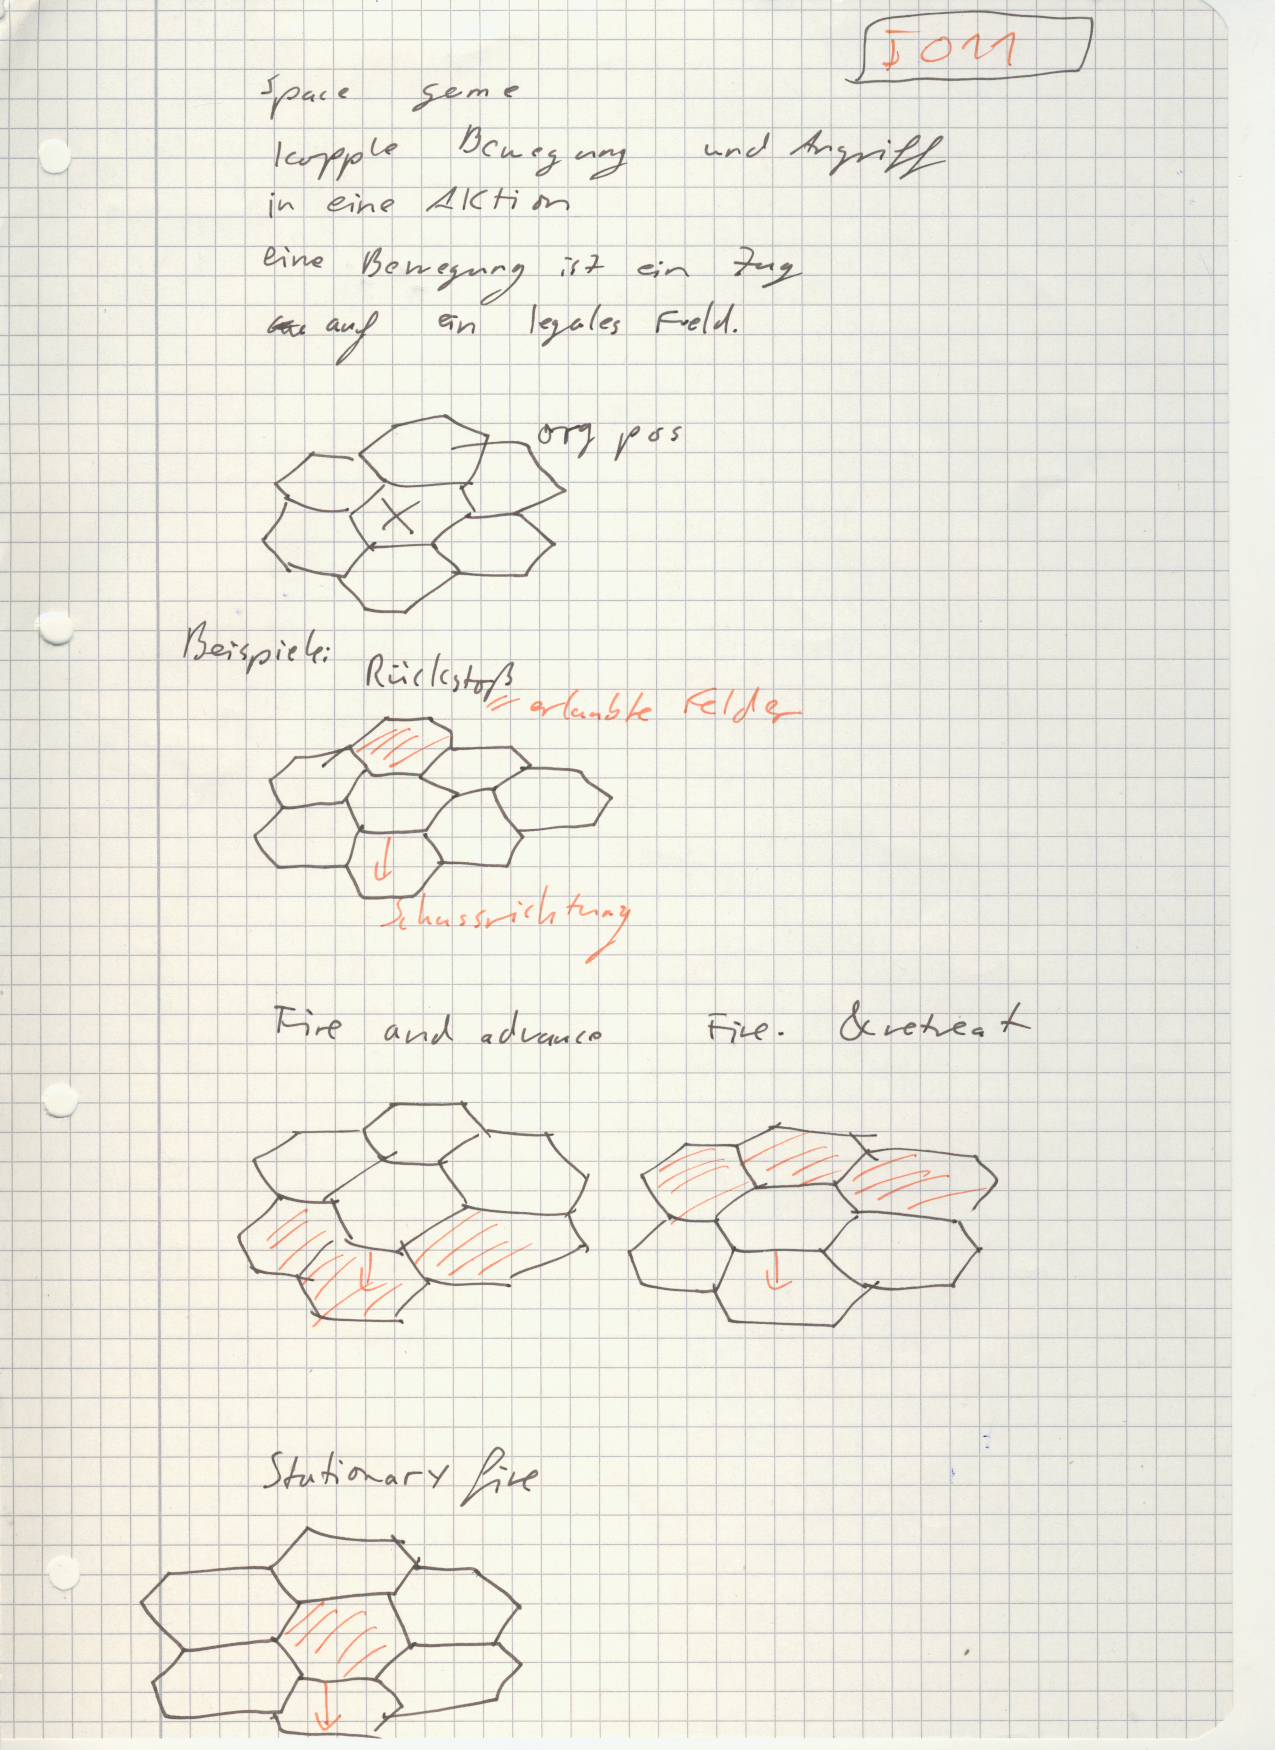 I011
Space game
kopple Bewegung und Angriff
in eine Aktion
eine Bewegung ist ein Zug
auf ein legales Feld.
org pos
X
Beispiele:
Rückstoß
= erlaubte Felder
Schussrichtung
Fire and advance
Fire. & retreat
Stationary fire